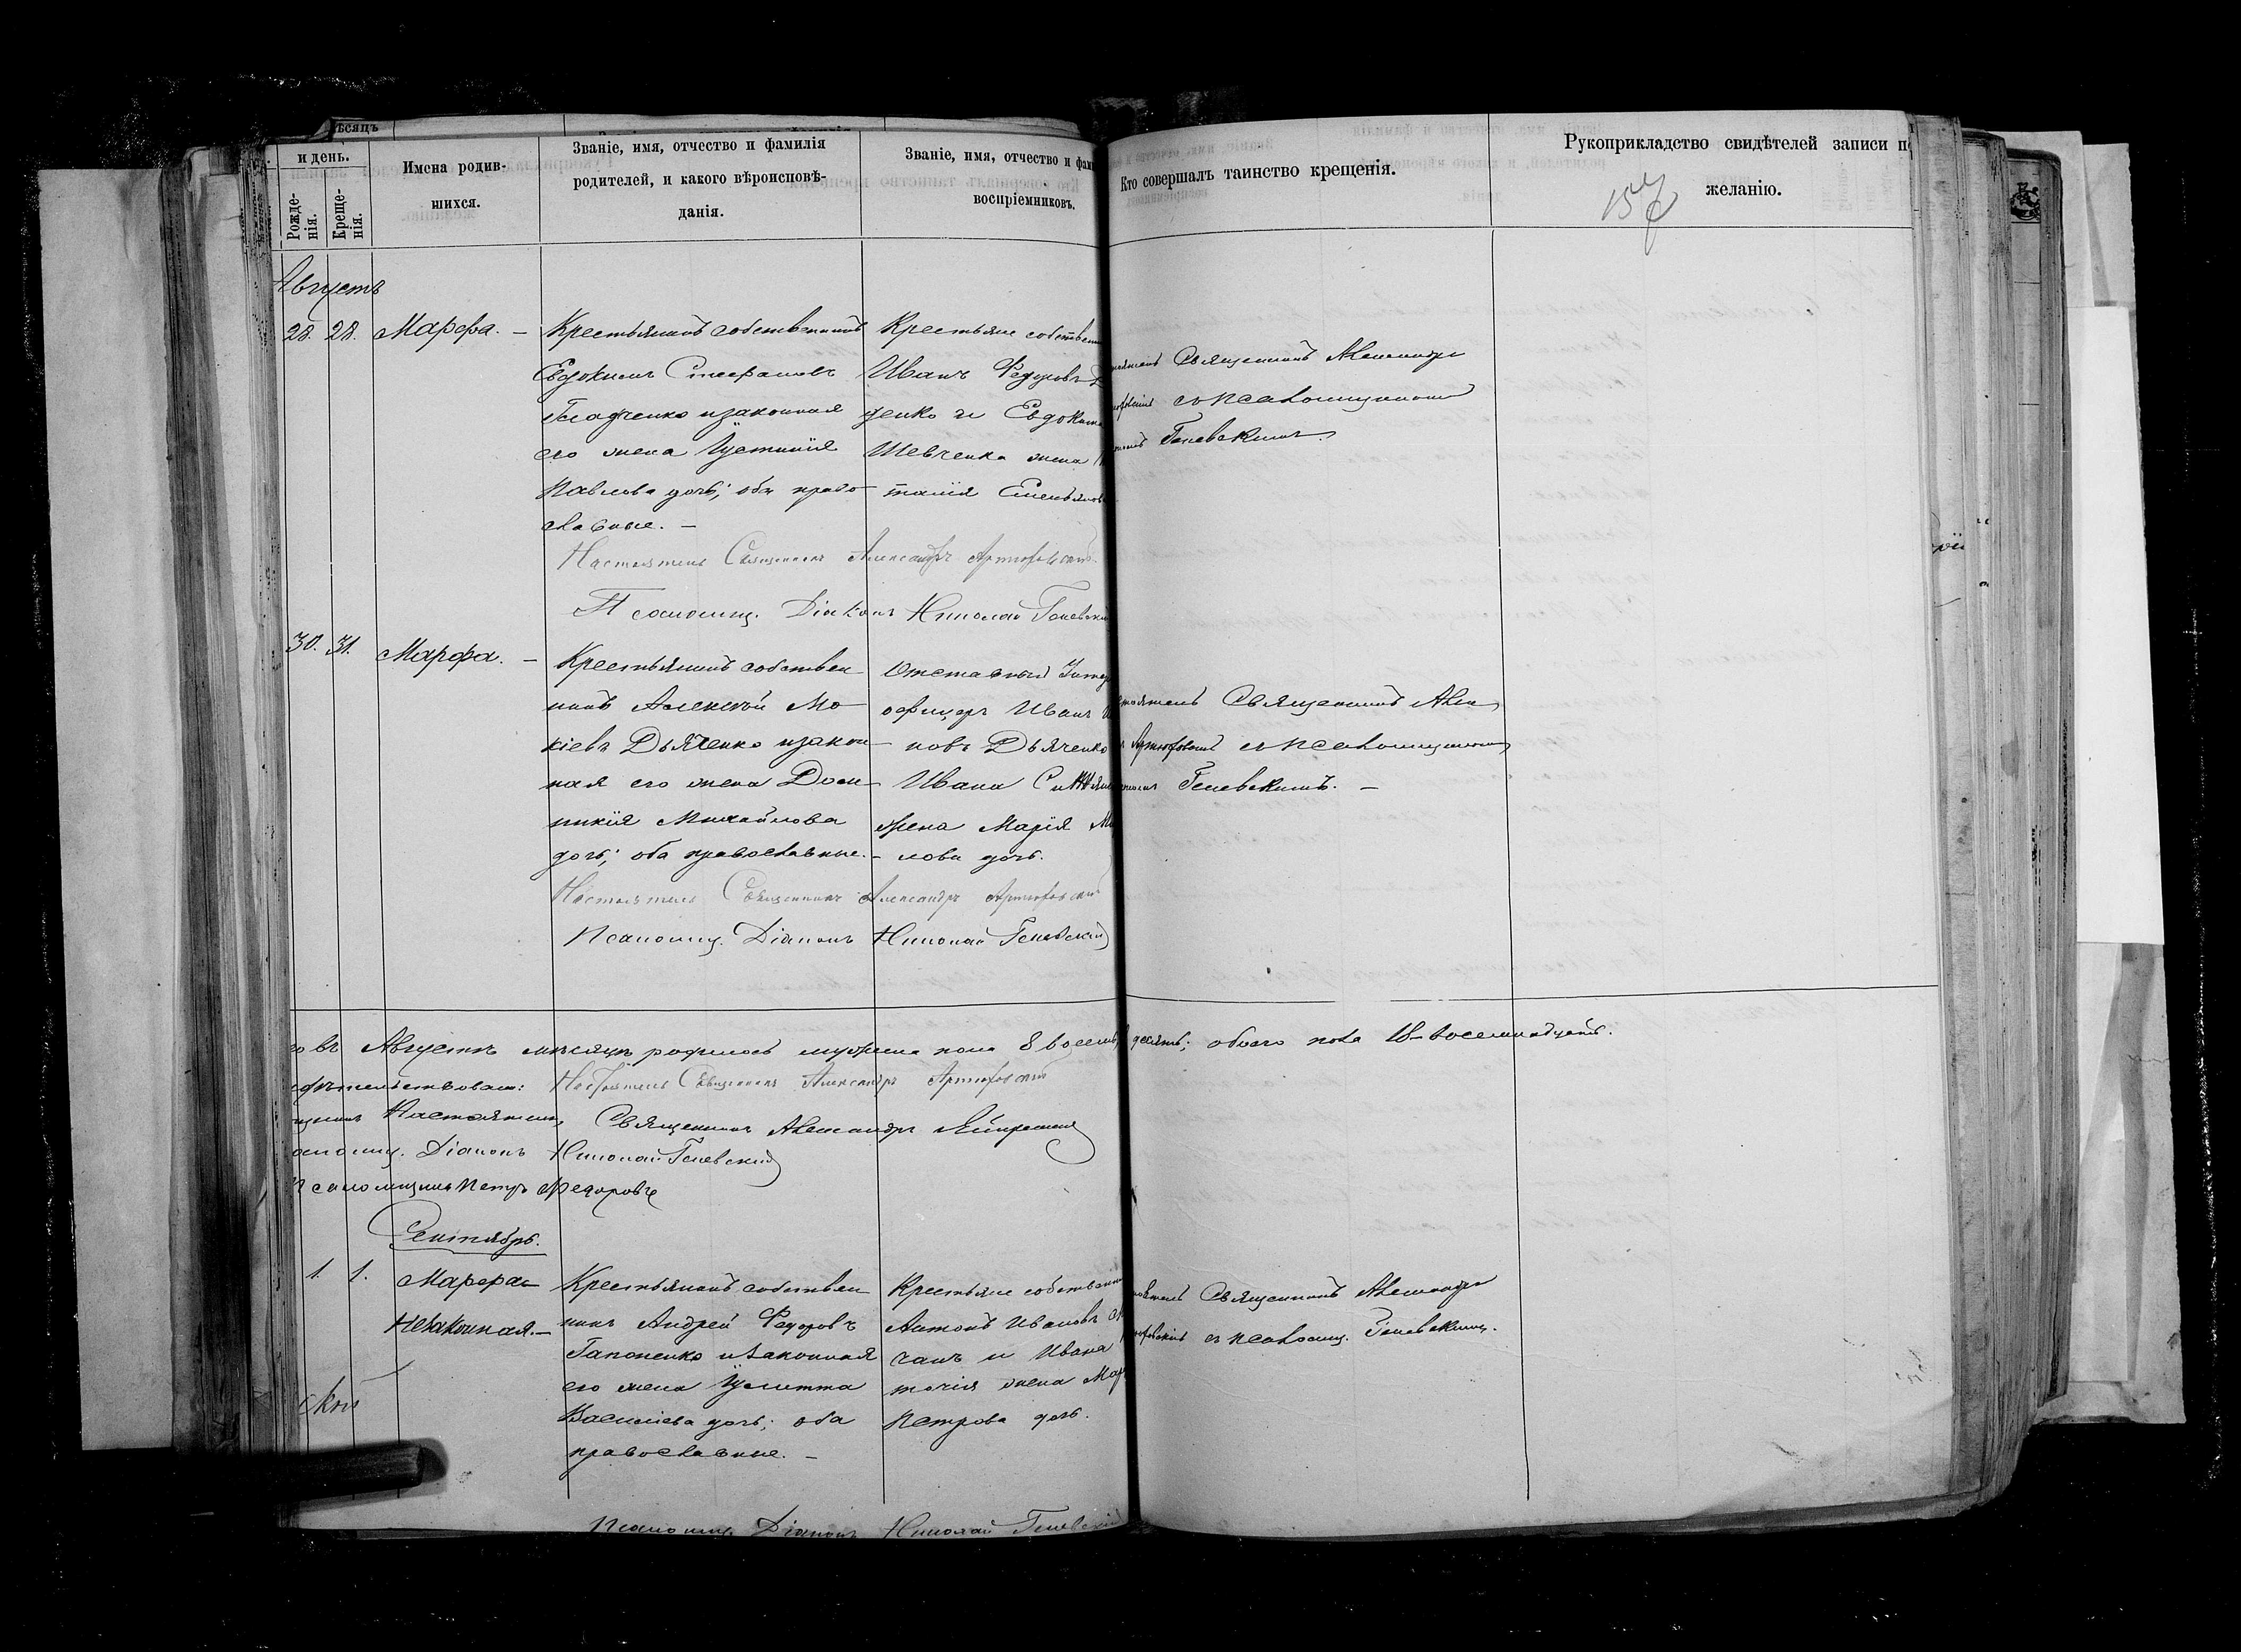 ѣсяцъ
и день.
Рожде-
нія.
Креще-
нія.
Имена родив-
шихся.
Званіе, имя, отчество и фамилія
родителей, и какого вѣроисповѣ-
данія.
Званіе, имя, отчество и фам
воспріемниковъ.
Кто совершалъ таинство крещенія.
Рукоприкладство свидѣтелей записи п
желанію.
Августъ
28. 28. Марфа. —
Крестьянинъ собственникъ
Евдокимъ Стефановъ
Гладченко и законная
его жена Іустинія
Павлова дочь; оба право-
славные. —
Крестьяне собствен
Иванъ Федоровъ
ценко и Евдоким
Шевченка жена
талія Емельянов
Священникъ Александръ
съ псаломщикомъ
Геневскимъ.
Настоятель Священникъ Александръ Артюховскій
Псаломщ. Діаконъ Николай Геневскій
30. 31. Марфа. —
Крестьянинъ собствен
никъ Алексѣй Мо
кіевъ Дьяченко и закон
ная его жена Дом
никія Михайлова
дочь; оба православные. —
Отставный Унтер
офицеръ Иванъ
новъ Дьяченко
Ивана
жена Марія М
лова дочь.
тоятель Священникъ Алек
Артюховскій съ псаломщикомъ
Геневскимъ. —
Настоятель Священникъ Александръ Артюховскій
Псаломщ. Діаконъ Николай Геневскій
го въ Августѣ мѣсяцѣ родилось мужеска пола 8 восемь, десять; обоего пола 18-восемнадцать.
дѣтельствовали: Настоятель Священникъ Александръ Артюховскій
щникъ Настоятеля Священникъ Александръ
аломщ. Діаконъ Николай Геневскій
Псаломщикъ Петръ Федоровъ
Сентябрь.
1. 1. Марфа
Незаконная. —
Крестьянинъ собствен
никъ Андрей Федоровъ
Гапоненко и законная
его жена Іулитта
Василіева дочь; оба
православные. —
Крестьяне собственни
Антонъ Ивановъ
чанъ и Ивана
жена Мар
Петрова дочь.
тоятель Священникъ Александръ
юховскій съ псаломщ. Геневскимъ.
ской
Псаломщ. Діаконъ Николай Геневскій